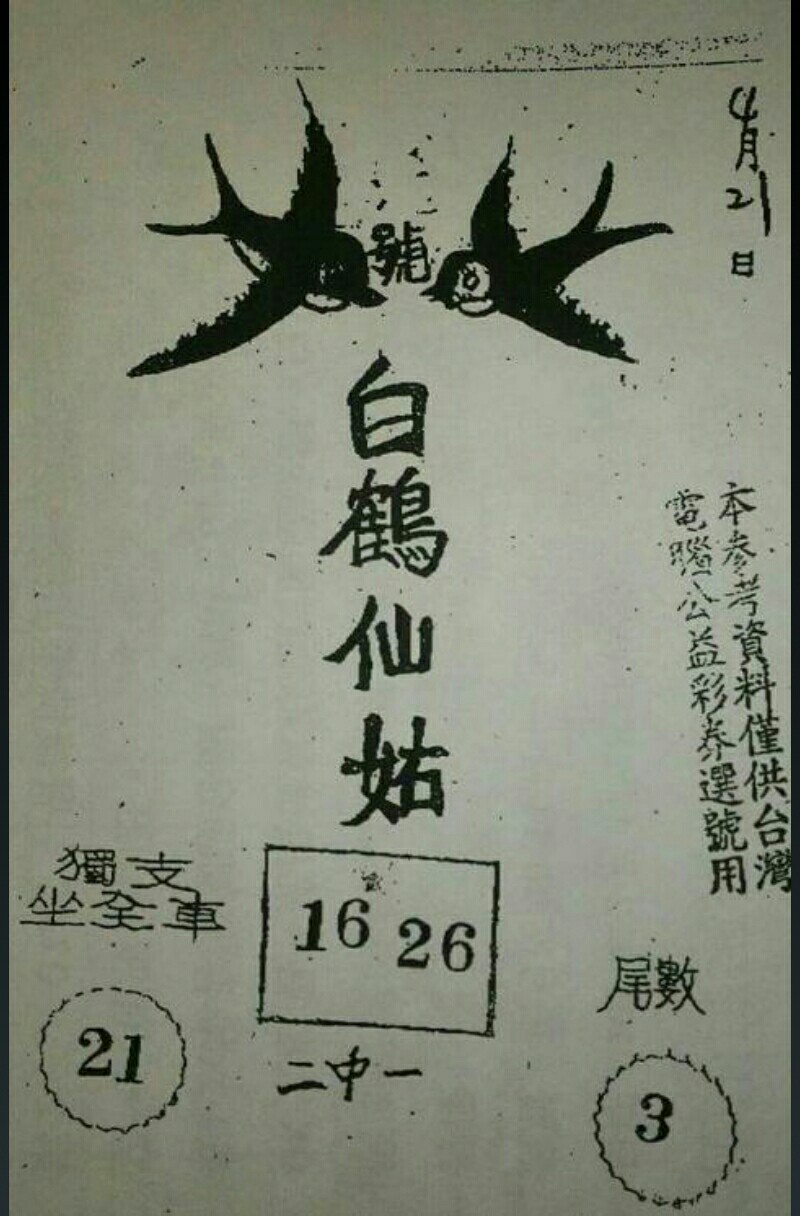 4月21日
號
白鶴仙姑
本參考資料僅供台灣
電腦公益彩券選號用
獨支
坐全車
21
16 26
二中一
尾數
3